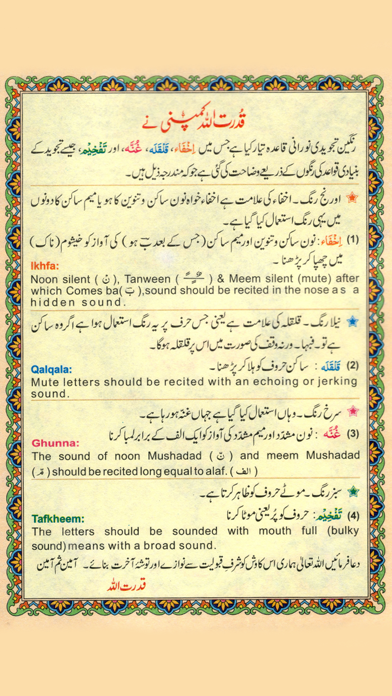 قدرت اللہ کمپنی نے
رنگین تجویدی نورانی قاعدہ تیار کیا ہے جس میں اِخْفَاء، قَلْقَلَه، غُنَّه، اور تَفْخِيْم، جیسے تجوید کے
بنیادی قواعد کی رنگوں کے ذریعے وضاحت کی گئی ہے جو کہ مندرجہ ذیل ہیں۔
اورنج رنگ۔ اخفاء کی علامت ہے اخفاء خواہ نون ساکن و تنوین کا ہو یا میم ساکن کا دونوں
میں یہی رنگ استعمال کیا گیا ہے۔
(1) اِخْفَاء: نون ساکن و تنوین اور میم ساکن (جس کے بعد بَ ہو) کی آواز کو خیشوم (ناک)
میں چھپا کر پڑھنا۔
Ikhfa:
Noon silent ( نْ ), Tanween ( ـًـٍـٌ ) & Meem silent (mute) after
which Comes ba( بَ ),sound should be recited in the nose as a
hidden sound.
نیلا رنگ۔ قلقلہ کی علامت ہے یعنی جس حرف پر یہ رنگ استعمال ہوا ہے اگر وہ ساکن
ہے تو فبہا۔ ورنہ وقف کی صورت میں اس پر قلقلہ ہوگا۔
(2) قَلْقَلَه : ساکن حروف کو ہلا کر پڑھنا۔
Qalqala:
Mute letters should be recited with an echoing or jerking
sound.
سرخ رنگ۔ وہاں استعمال کیا گیا ہے جہاں غنہ ہو رہا ہے۔
(3) غُنَّه: نون مشدد اور میم مشدد کی آواز کو ایک الف کے برابر لمبا کرنا
Ghunna:
The sound of noon Mushadad ( نّ ) and meem Mushadad
( مّ ) should be recited long equal to alaf. ( الف )
سبز رنگ۔ موٹے حروف کو ظاہر کرتا ہے۔
(4) تَفْخِيْم: حروف کو پُر یعنی موٹا کرنا
Tafkheem:
The letters should be sounded with mouth full (bulky
sound) means with a broad sound.
دعا فرمائیں اللہ تعالیٰ ہماری اس کاوش کو شرفِ قبولیت سے نوازے اور توشۂ آخرت بنائے۔ آمین ثم آمین
قدرت اللہ